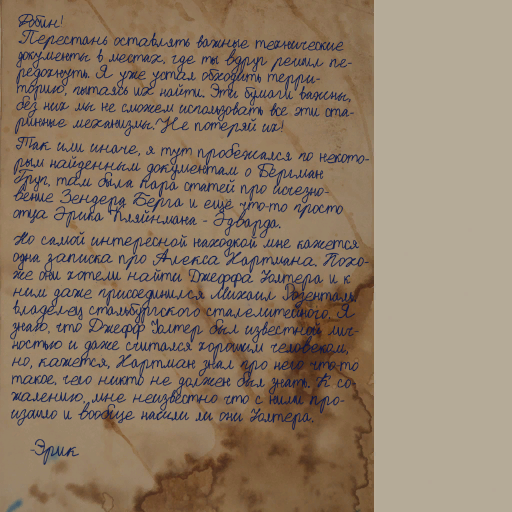 Робин!
Перестань оставлять важные технические
документы в местах, где ты вдруг решил пе-
редохнуть. Я уже устал обходить терри-
торию, пытаясь их найти. Эти бумаги важны,
без них мы не сможем использовать все эти ста-
ринные механизмы! Не потеряй их!
Так или иначе, я тут пробежался по некото-
рым найденным документам о Бергман
Груп, там была пара статей про исчезно-
вение Зендера Берга и ещё что-то просто
отца Эрика Кляйнмана - Эдварда.
Но самой интересной находкой мне кажется
одна записка про Алекса Хартмана. Похо-
же они хотели найти Джеффа Уолтера и к
ним даже присоединился Михаил Розенталь
владелец стальбургского сталелитейного. Я
знаю, что Джефф Уолтер был известной лич-
ностью и даже считался хорошим человеком,
но, кажется, Хартман знал про него что-то
такое, чего никто не должен был знать. К со-
жалению, мне неизвестно что с ними про-
изошло и вообще нашли ли они Уолтера.
-Эрик